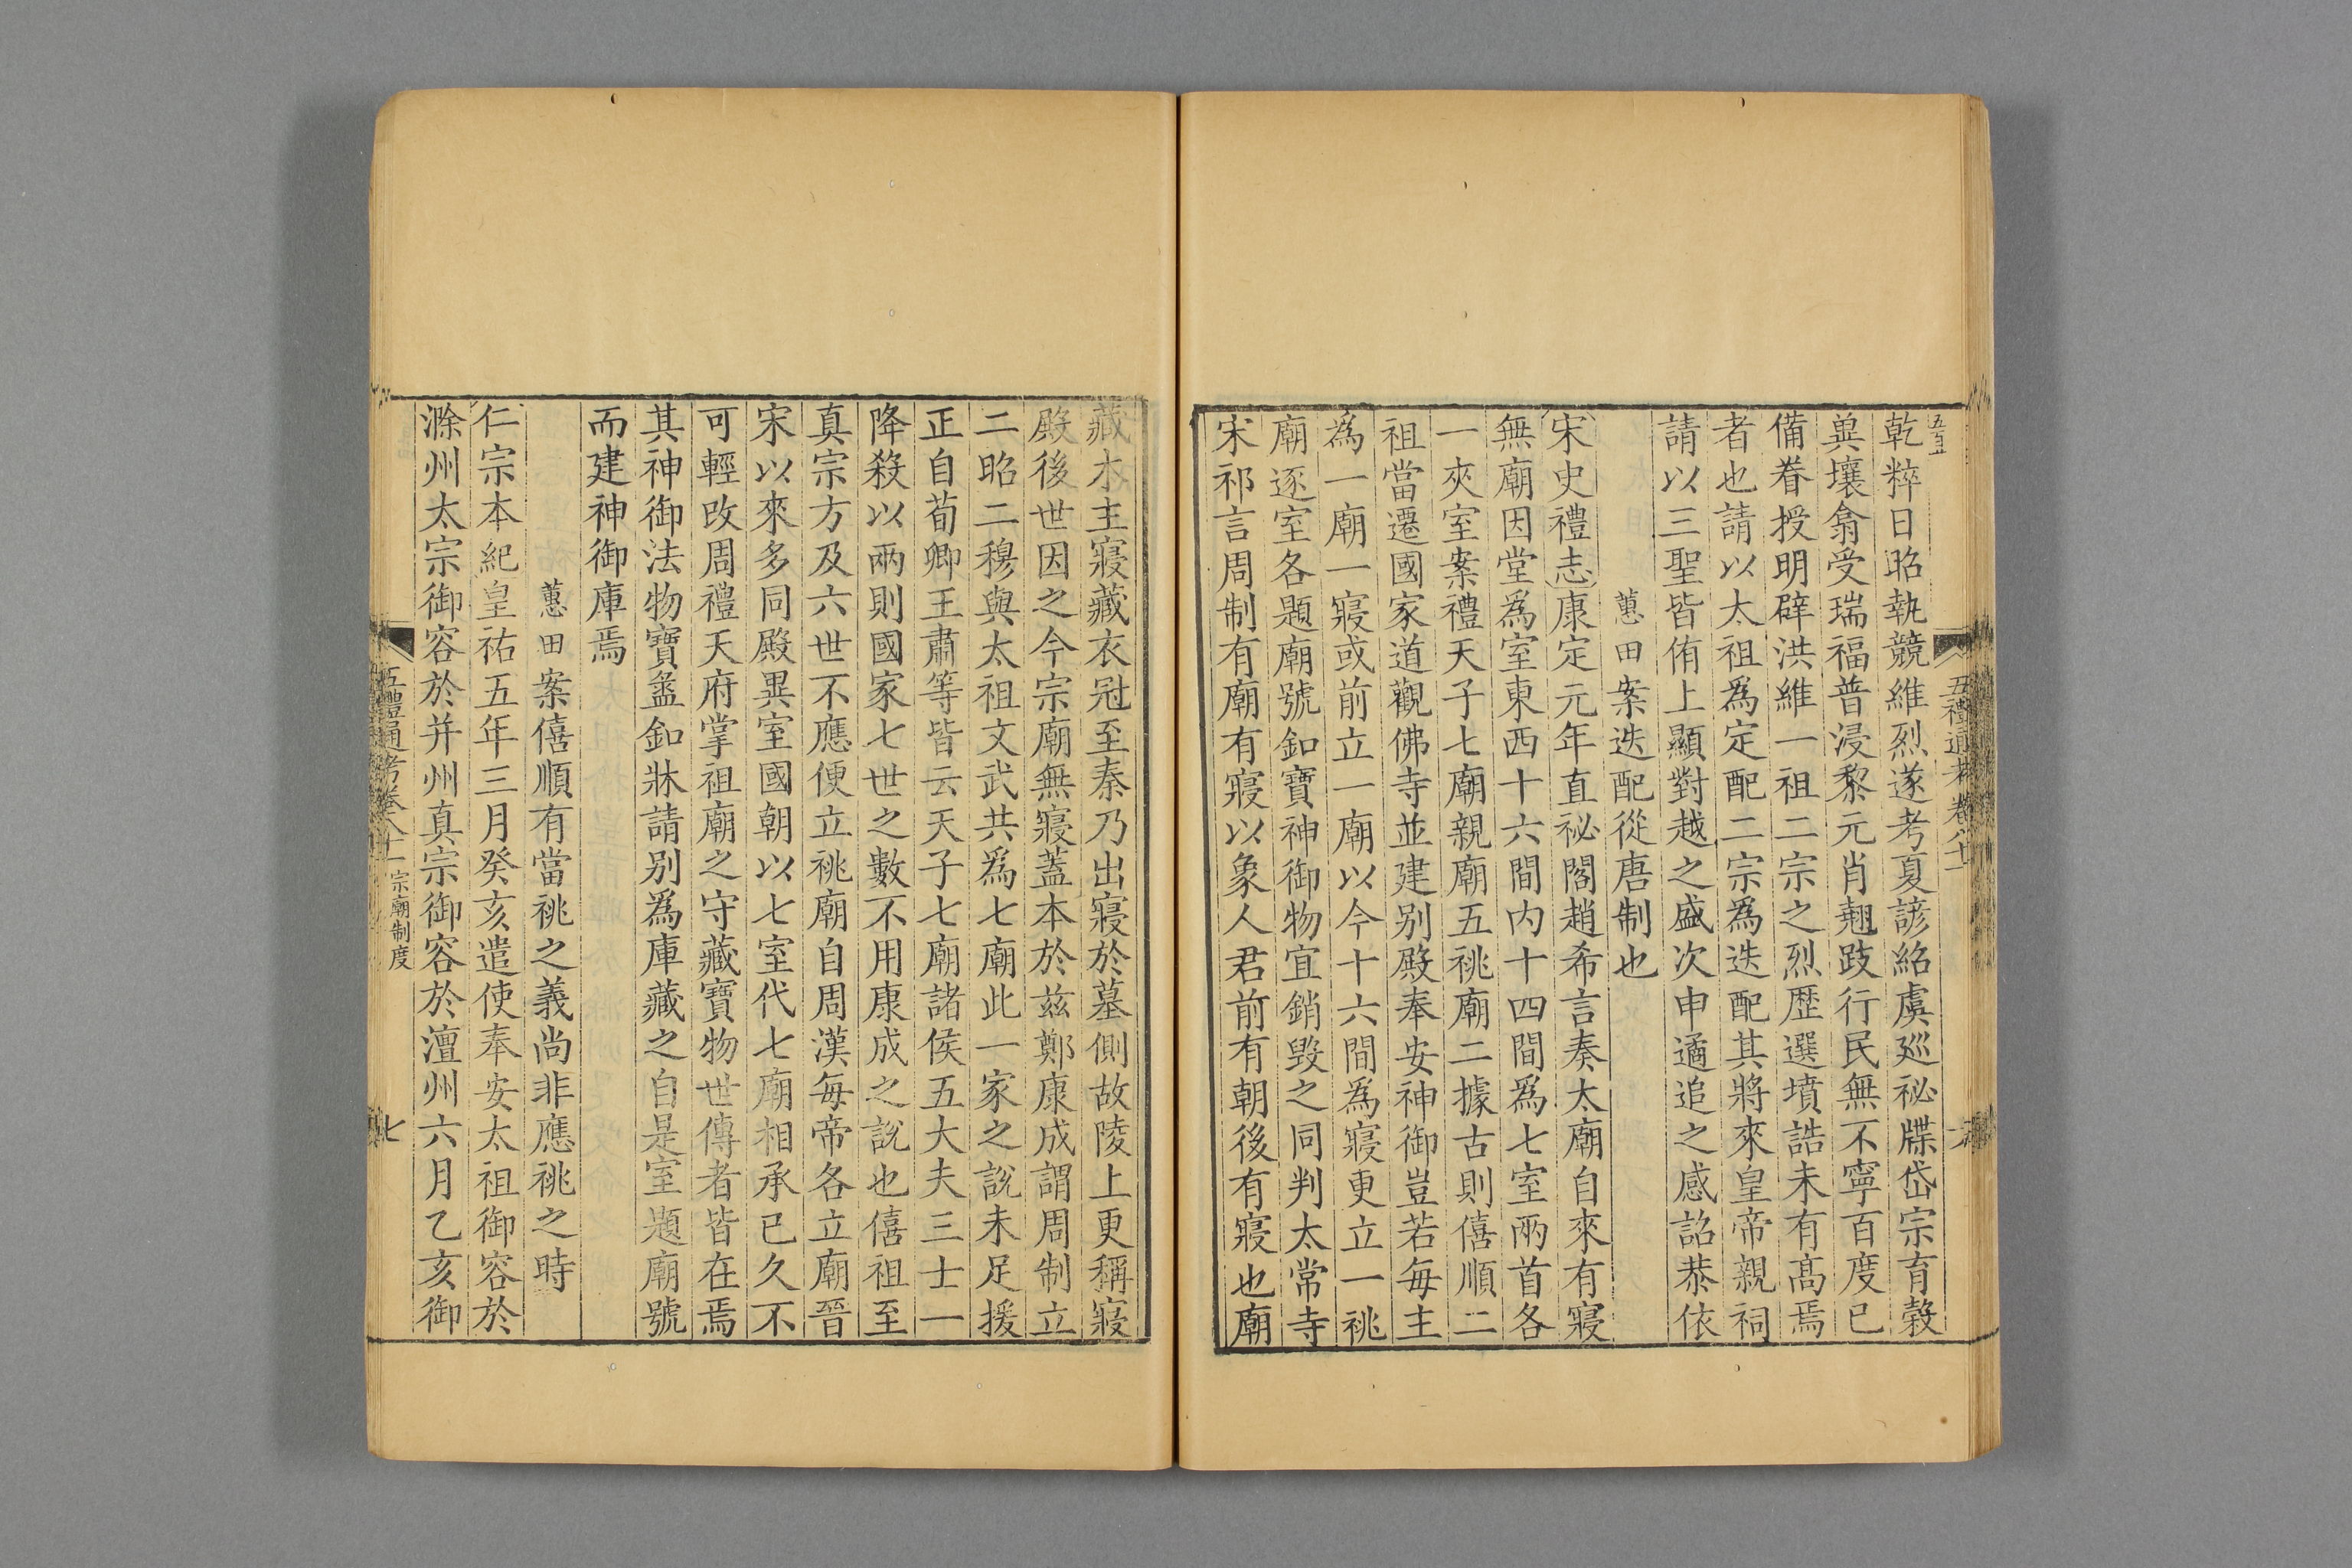 乾粹日昭執競維烈遂考夏諺紹虞廵祕牒岱宗育穀
異壤翕受瑞福普浸黎元肖翹跂行民無不寧百度已
備眷授明辟洪維一祖二宗之烈歴選墳誥未有髙焉
者也請以太祖爲定配二宗爲迭配其將來皇帝親祠
請以三聖皆侑上顯對越之盛次申遹追之感詔恭依
蕙田案迭配從唐制也
宋史禮志康定元年直祕閣趙希言奏太廟自來有寢
無廟因堂爲室東西十六間内十四間爲七室兩首各
一夾室案禮天子七廟親廟五祧廟二據古則僖順二
祖當遷國家道觀佛寺並建别殿奉安神御豈若每主
爲一廟一寢或前立一廟以今十六間爲寢更立一祧
廟逐室各題廟號釦寶神御物宜銷毀之同判太常寺
宋祁言周制有廟有寢以象人君前有朝後有寢也廟
藏木主寢藏衣冠至秦乃出寢於墓側故陵上更稱寢
殿後世因之今宗廟無寢蓋本於兹鄭康成謂周制立
二昭二穆與太祖文武共爲七廟此一家之說未足援
正自荀卿王肅等皆云天子七廟諸侯五大夫三士一
降殺以兩則國家七世之數不用康成之說也僖祖至
真宗方及六世不應便立祧廟自周漢每帝各立廟晉
宋以來多同殿異室國朝以七室代七廟相承已久不
可輕改周禮天府掌祖廟之守藏寶物世傳者皆在焉
其神御法物寶盝釦牀請别爲庫藏之自是室題廟號
而建神御庫焉
蕙田案僖順有當祧之義尚非應祧之時
仁宗本紀皇祐五年三月癸亥遣使奉安太祖御容於
滁州太宗御容於并州真宗御容於澶州六月乙亥御
五禮通考卷八十一 宗廟制度
七